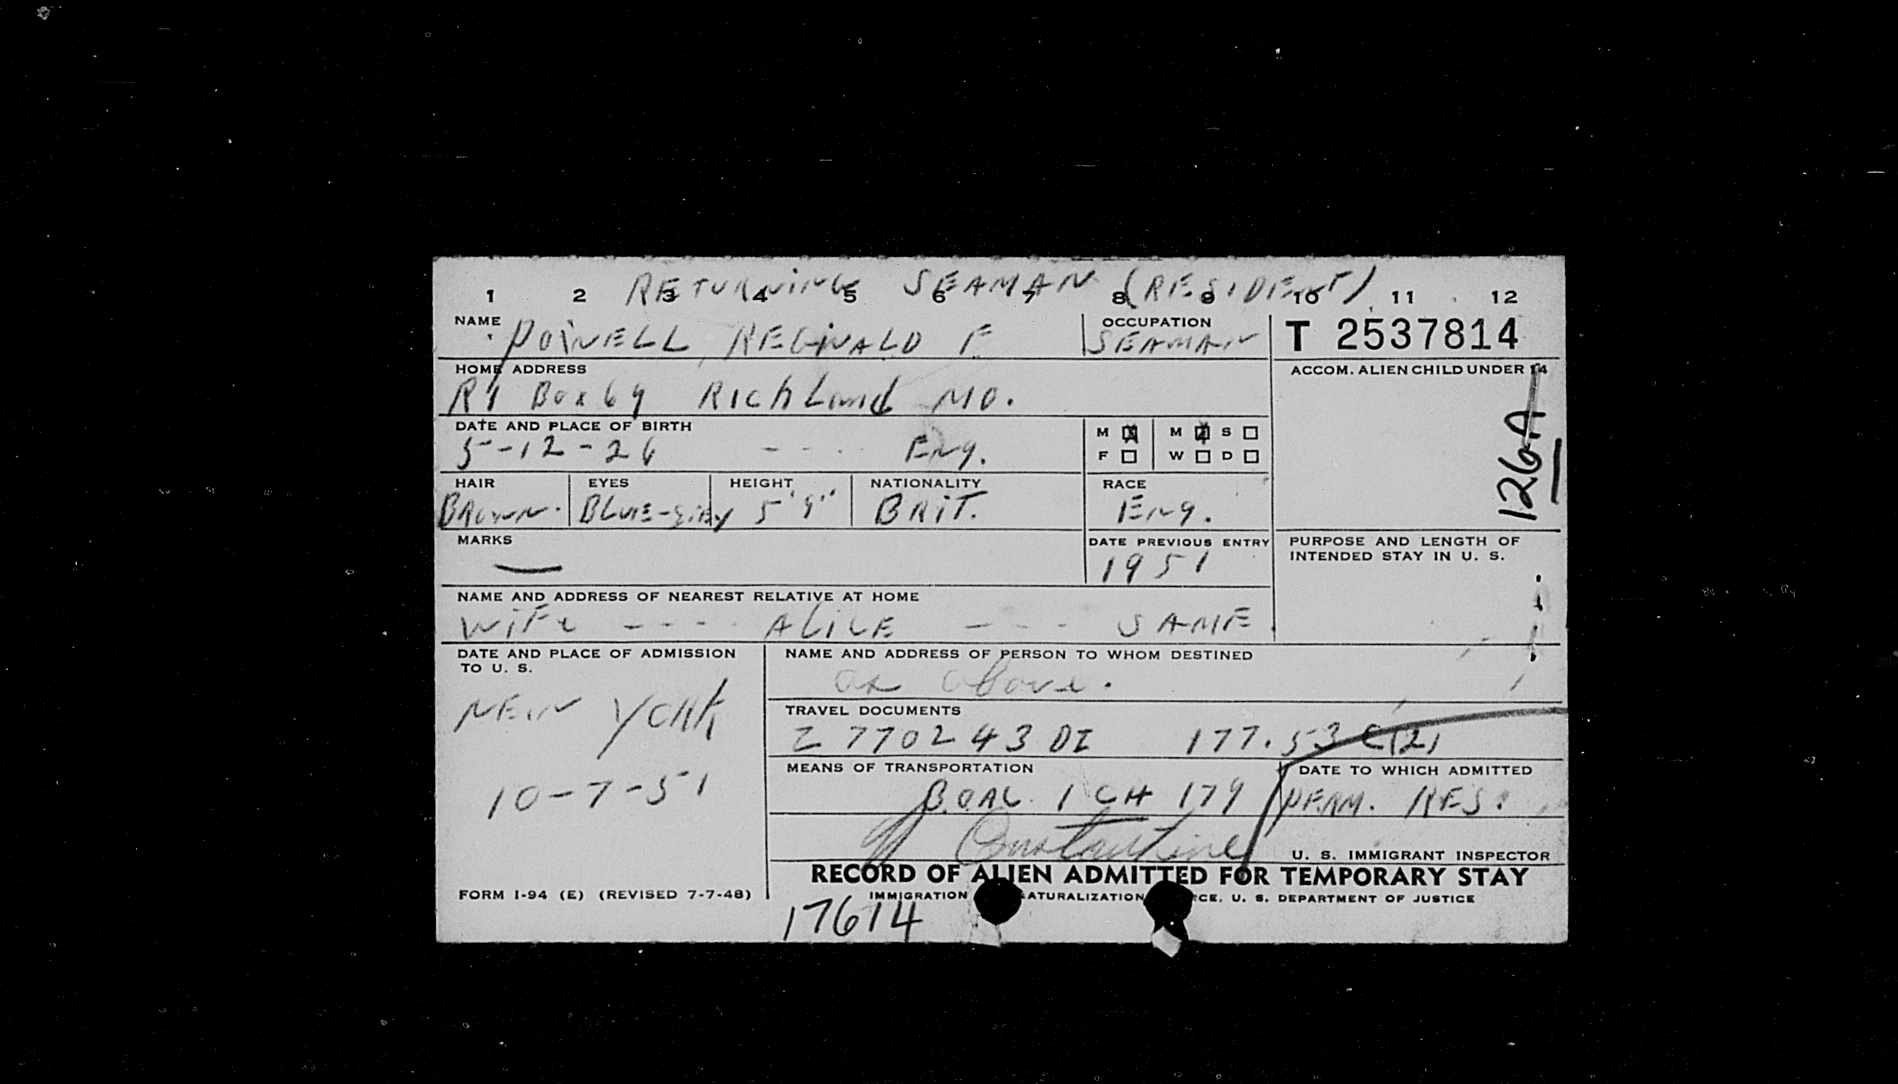 RETURNING SEAMAN (RESIDENT)
1 2 3 4 5 6 7 8 9 10 11 12
NAME POWELL, REGINALD F
OCCUPATION SEAMAN
T 2537814
HOME ADDRESS
R1 Box 69 RICHLAND MO.
ACCOM. ALIEN CHILD UNDER 14
126A
DATE AND PLACE OF BIRTH
5-12-26 - - - - Eng.
M X M X S
F W D
HAIR EYES HEIGHT NATIONALITY RACE
BROWN. BLUE-GREY 5'9" BRIT. Eng.
MARKS
—
DATE PREVIOUS ENTRY
1951
PURPOSE AND LENGTH OF
INTENDED STAY IN U. S.
NAME AND ADDRESS OF NEAREST RELATIVE AT HOME
WIFE - - - - ALICE - - - SAME
DATE AND PLACE OF ADMISSION
TO U. S.
NEW YORK
10-7-51
NAME AND ADDRESS OF PERSON TO WHOM DESTINED
as above.
TRAVEL DOCUMENTS
Z 770243 DI 177.53 C(2)
MEANS OF TRANSPORTATION
BOAC 1 CH 179
DATE TO WHICH ADMITTED
PERM. RES.
Constantine
U. S. IMMIGRANT INSPECTOR
RECORD OF ALIEN ADMITTED FOR TEMPORARY STAY
FORM I-94 (E) (REVISED 7-7-48)
IMMIGRATION ATURALIZATION RCE, U. S. DEPARTMENT OF JUSTICE
17614